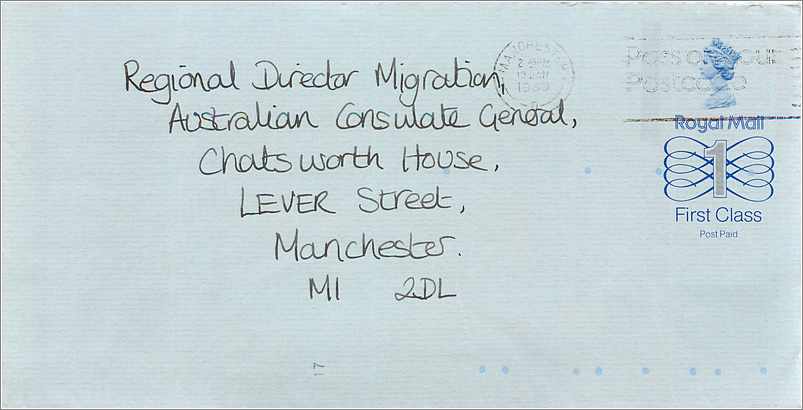 Regional Director Migration,
Australian Consulate General,
Chatsworth House,
LEVER Street,
Manchester.
M1 2DL
MANCHESTER
Pass on your
Postcode
Royal Mail
1
First Class
Post Paid
17